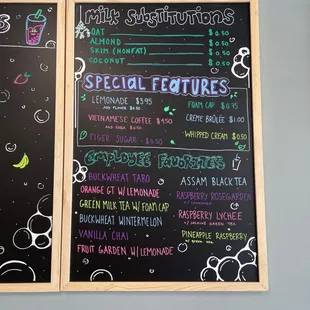 S
Milk Substitutions
OAT $0.50
ALMOND $0.50
SKIM (NONFAT) $0.50
COCONUT $0.50
SPECIAL FEATURES
LEMONADE $3.95
ADD FLAVOR $0.50
VIETNAMESE COFFEE $4.50
TIGER SUGAR $0.50
FOAM CAP $0.75
CREME BRÛLÉE $1.00
WHIPPED CREAM $0.50
Employee Favorites
BUCKWHEAT TARO
ORANGE GT W/ LEMONADE
GREEN MILK TEA W/ FOAM CAP
BUCKWHEAT WINTERMELON
VANILLA CHAI
FRUIT GARDEN W/ LEMONADE
ASSAM BLACK TEA
RASPBERRY ROSEGARDEN
W/ LEMONADE
RASPBERRY LYCHEE
W/ JASMINE GREEN TEA
PINEAPPLE RASPBERRY
W/ GREEN TEA